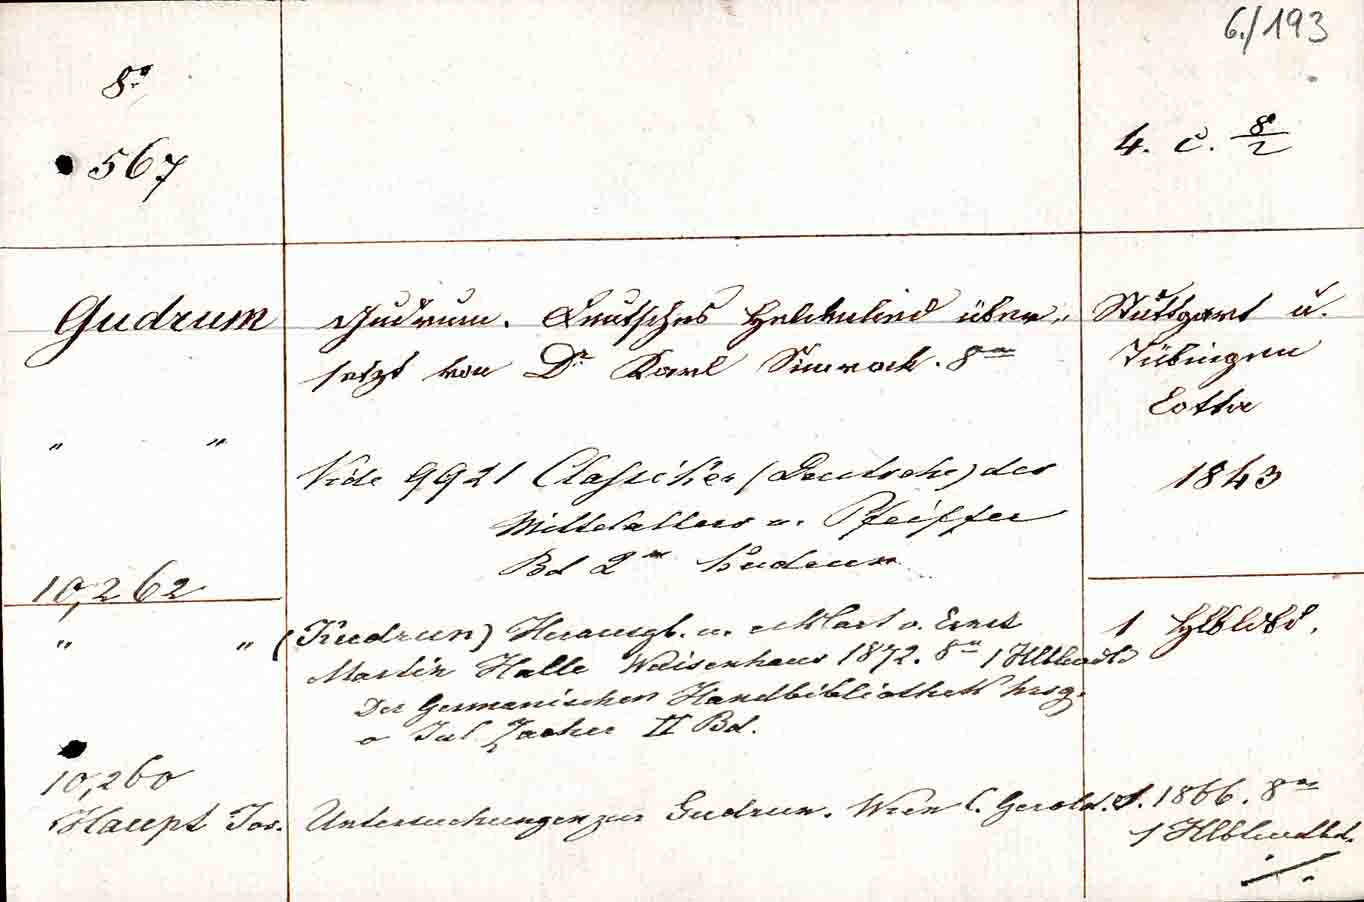 6./193
8º
567
4. c. 8/2
Gudrum
Gudrum. Deutsches Heldenlied über-
setzt von Dr Karl Simrock. 8º
Stuttgart u.
Tübingen
Cotta
1843
" "
Vide 9921 Classiker (Deutsche) des
Mittelalters v. Pfeiffer
Bd 2
10,262
1 Hlblwbd.
" " (Kudrun) Herausgb. u. v. Ernst
Martin Halle Waisenhaus 1872. 8º 1 Hlblwdbd
Der Germanischen Handbibliothek hrsg.
v Jul. Zacher II Bd.
10,260
Haupt Jos. Untersuchungen zur Gudrun. Wien C. Gerold. S. 1866. 8º
1 Hlblwdbd.